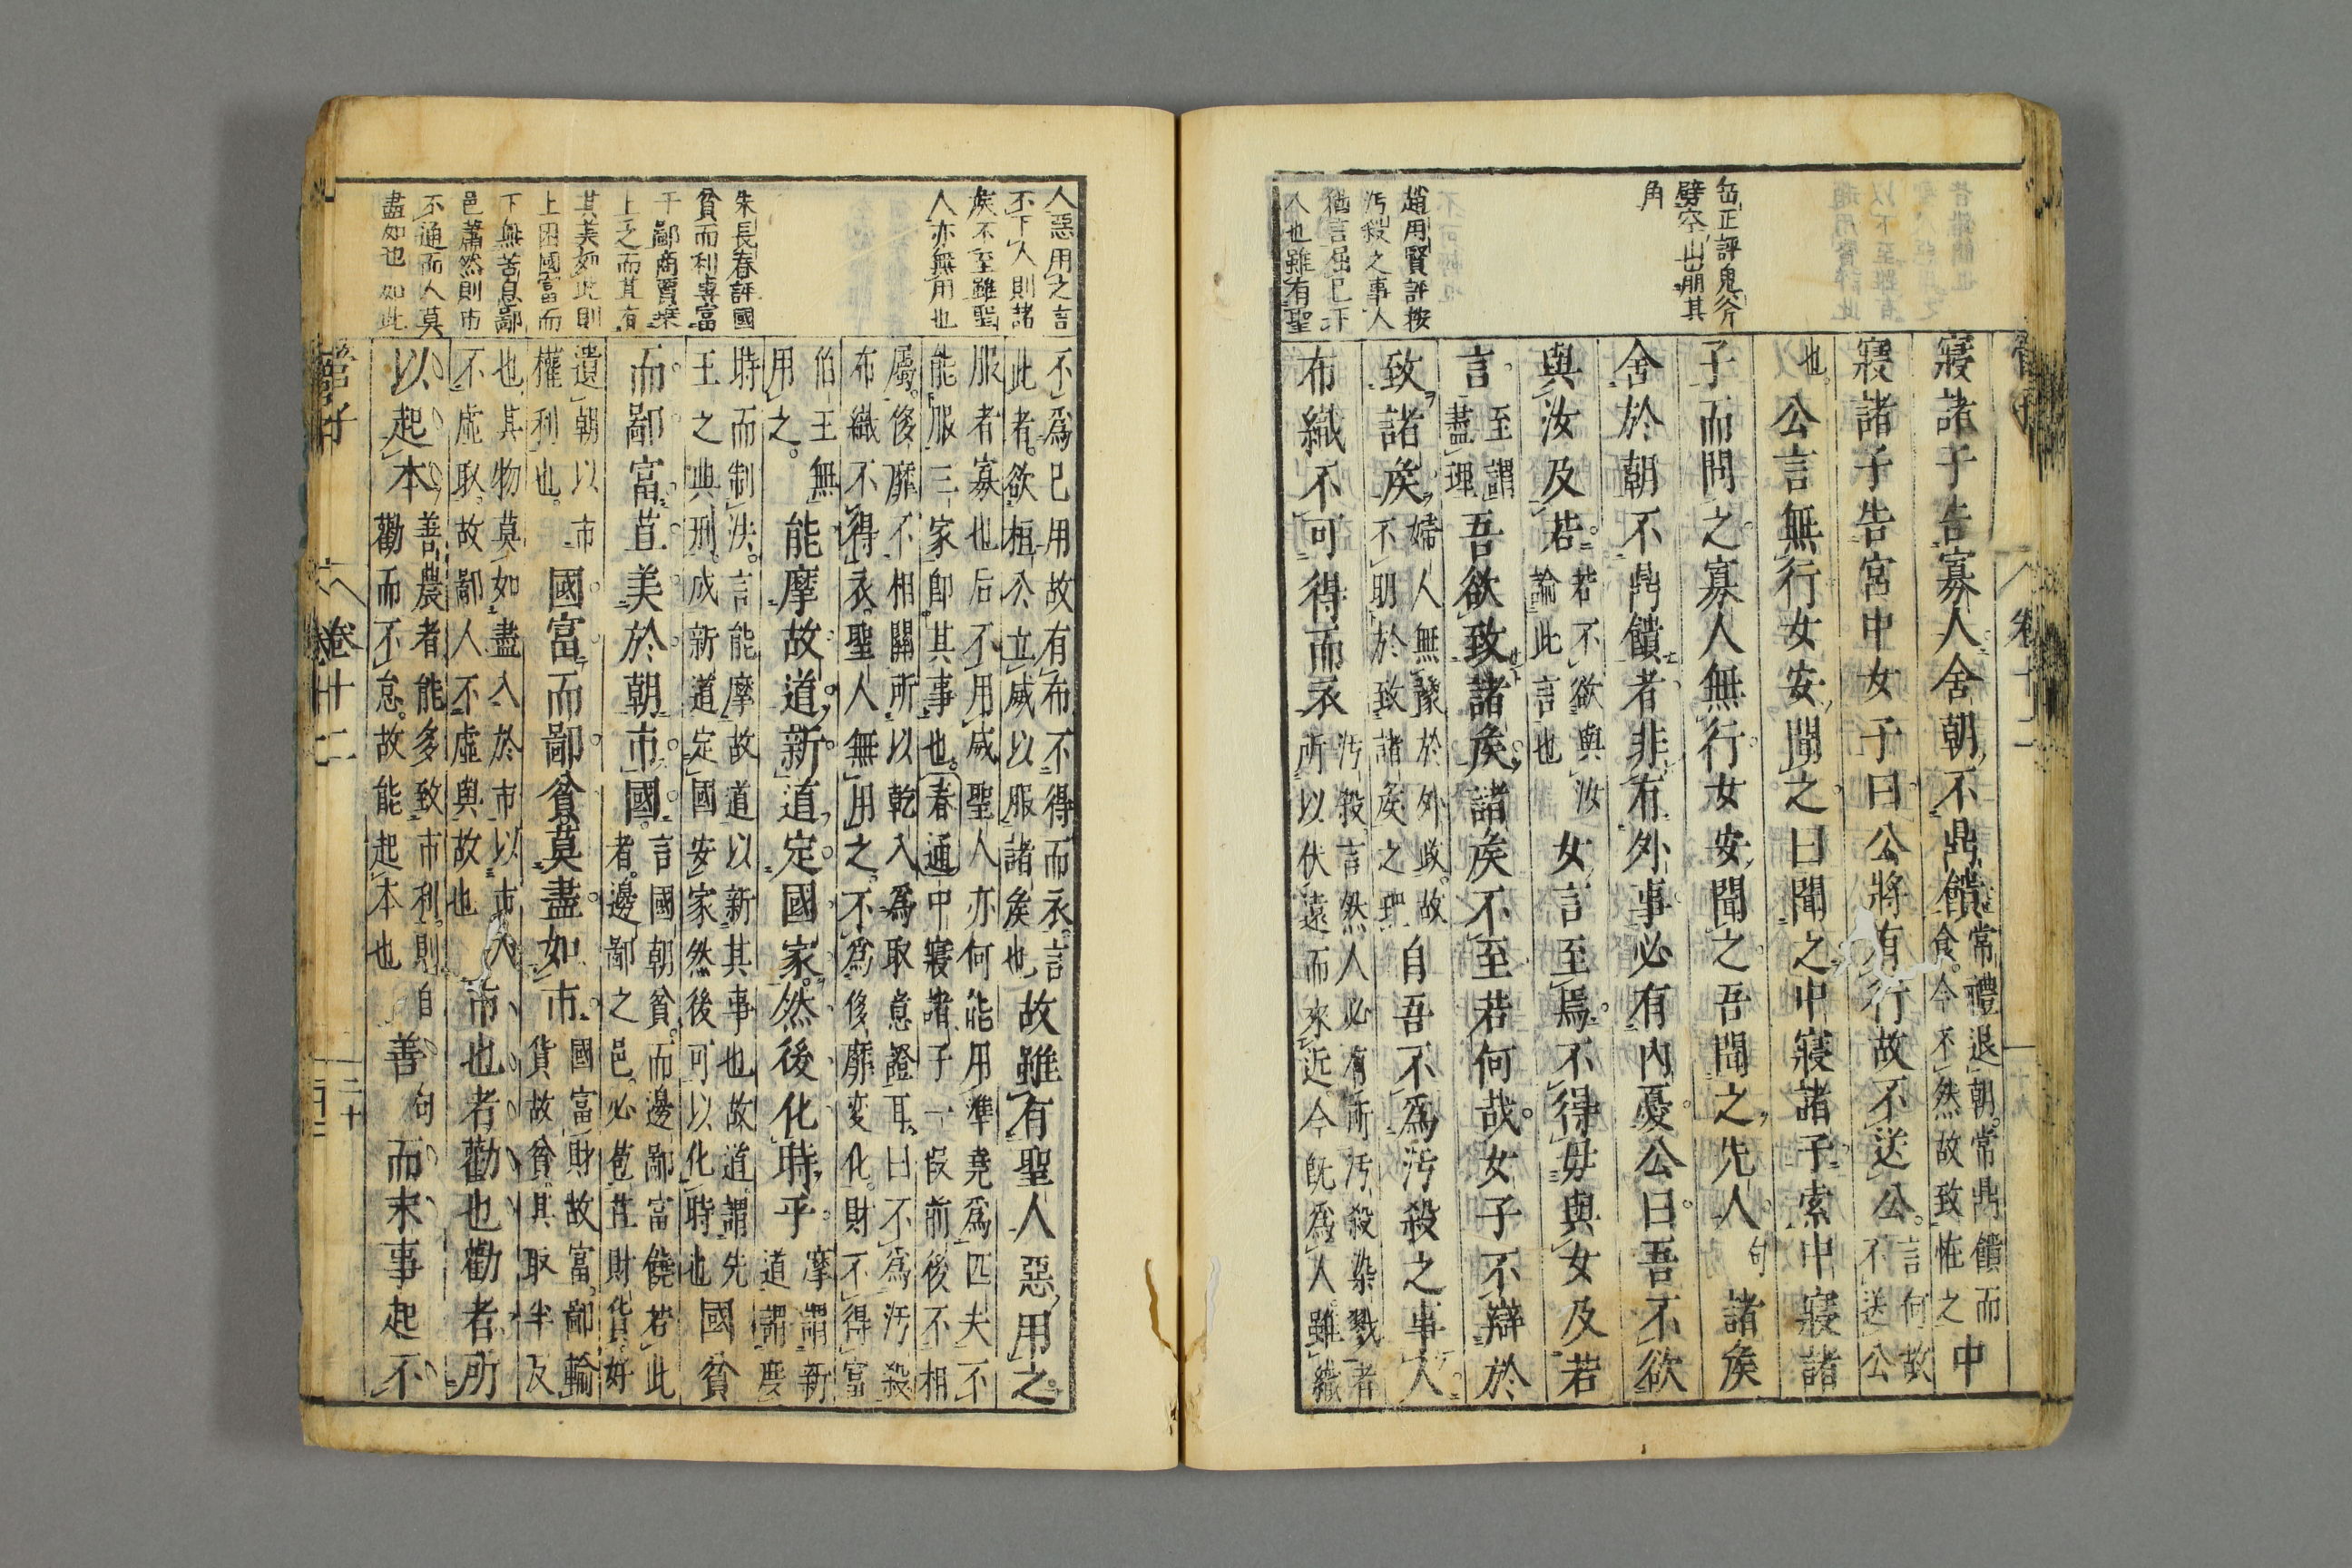 岳正評鬼斧
劈空出崩其
角
趙用賢評按
汚殺之事人
猶言屈已下
人也雖有聖
寢諸子告寡人舍朝不鼎饋常禮退朝常鼎饋而
食今不然故致恠之中
寢諸子告宮中女子曰公將有行故不送公言何故
不送公
也公言無行女安聞之曰聞之中寢諸子索中寢諸
子而問之寡人無行女安聞之吾聞之先人句諸矦
舍於朝不鼎饋者非有外事必有內憂公曰吾不欲
與汝及若若不欲與汝
論此言也女言至焉不得毋與女及若
言至謂
盡理吾欲致諸矦諸矦不至若何哉女子不辯於
致諸矦婦人無豫於外政故
不明於致諸矦之理自吾不為汚殺之事人
布織不可得而衣汚殺言然人必有所汚殺染戮者
所以伏遠而來近今旣為人雖織
管子
卷十二
人惡用之言
不下人則諸
矦不至雖聖
人亦無用也
朱長春評國
貧而利專富
于鄙商賈乗
上之而其有
其美如此則
上困國富而
下無苦息鄙
邑蕭然則市
不通而人莫
盡如也如此
不為已用故有布不得而衣言
此者欲桓公立威以服諸矦也故雖有聖人惡用之
服者寡也后不用威聖人亦何能用準堯為匹夫不
能服三家卽其事也春通中寢諸子一假前後不相
屬侈靡不相關所以乾入為取意證耳曰不為汚殺
布織不得衣聖人無用之不為侈靡変化財不得富
伯王無
用之能摩故道新道定國家然後化時乎摩謂新
道謂度
時而制法言能摩故道以新其事也故道謂先
王之典刑成新道定國安家然後可以化時也國貧
而鄙富苴美於朝市國言國朝貧而邊鄙富饒若此
者邊鄙之邑必苞苴財貨好
遺朝以市
權利也國富而鄙貧莫盡如市國富財故富鄙輸
貨故貧其取半反
也其物莫如盡入於市以市入
不虛取故鄙人不虛與故也市也者勸也勸者所
以起本善農者能多致市利則自
勸而不怠故能起本也善句而末事起不
管子
卷十二
二十